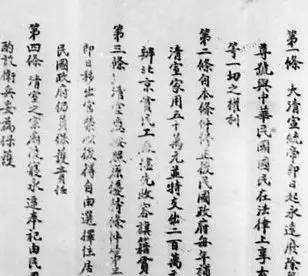 第一條 大清宣統帝即日起永遠廢除
尊號與中華民國國民在法律上享
等一切之權利
第二條自本條件修正後民國政府每年
清室家用五十萬元並特支出二百萬
辦北京貧民工廠儘先收容旗籍貧
第三條 清室應按照原優待條件第三
即日移出宮禁以後得自由選擇住居
民國政府仍負保護責任
第四條 清室之宗廟陵寢永遠奉祀由民
酌設衛兵妥為保護